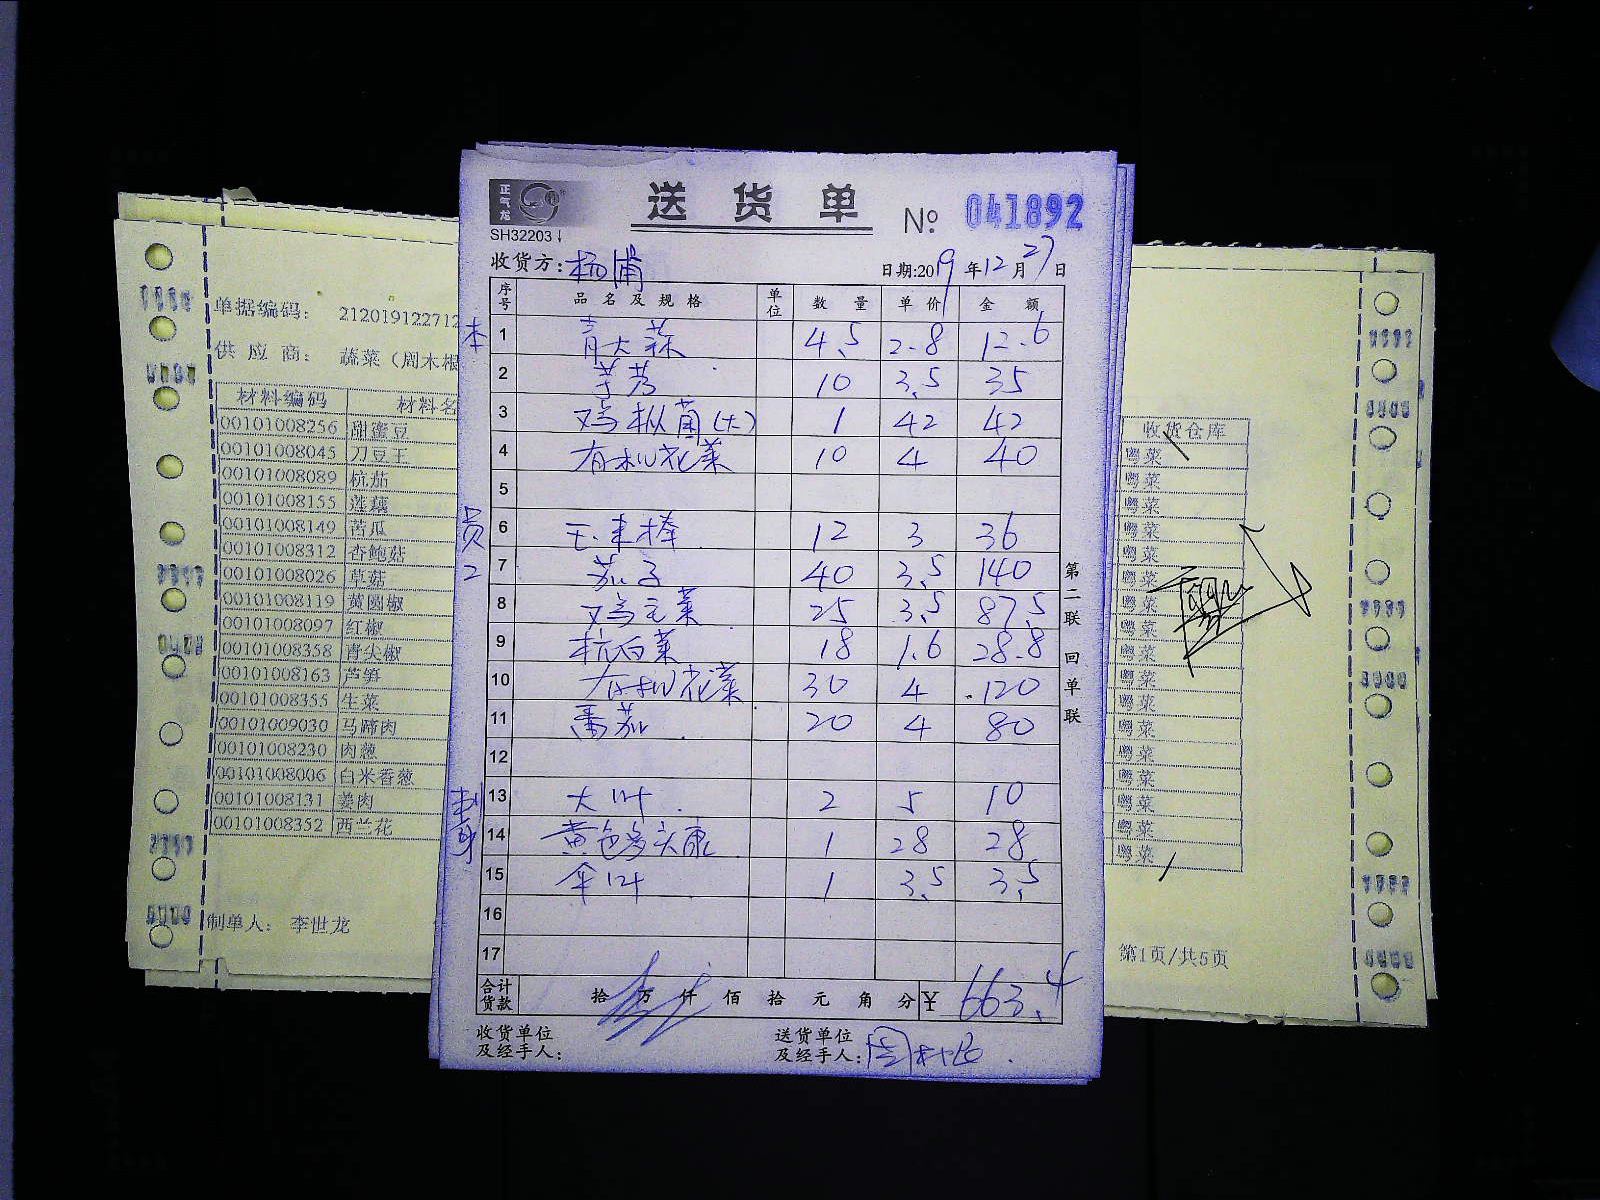 正气龙
送货单 № 041892
SH32203
收货方：杨浦 日期:2019年12月27日
序号 品名及规格 单位 数量 单价 金额
1 青大蒜 4.5 2.8 12.6
2 芋艿 10 3.5 35
3 鸡枞菌(大) 1 42 42
4 有机花菜 10 4 40
5
6 玉米棒 12 3 36
7 茄子 40 3.5 140
8 鸡毛菜 25 3.5 87.5
9 杭白菜 18 1.6 28.8
10 有机花菜 30 4 120
11 番茄 20 4 80
12
13 大叶 2 5 10
14 黄色多头康 1 28 28
15 伞叶 1 3.5 3.5
16
17
合计货款 拾 万 仟 佰 拾 元 角 分 ¥ 663.4
收货单位及经手人：
送货单位及经手人：周木根
第二联 回单联
本
员2
单据编码： 212019122712
供应商： 蔬菜（周木根
材料编码 材料名
00101008256 甜蜜豆
00101008045 刀豆王
00101008089 杭茄
00101008155 莲藕
00101008149 苦瓜
00101008312 杏鲍菇
00101008026 草菇
00101008119 黄圆椒
00101008097 红椒
00101008358 青尖椒
00101008163 芦笋
00101008355 生菜
00101009030 马蹄肉
00101008230 肉葱
00101008006 白米香葱
00101008131 姜肉
00101008352 西兰花
制单人： 李世龙
收货仓库
粤菜
粤菜
粤菜
粤菜
粤菜
粤菜
粤菜
粤菜
粤菜
粤菜
粤菜
粤菜
粤菜
粤菜
粤菜
粤菜
粤菜
第1页/共5页